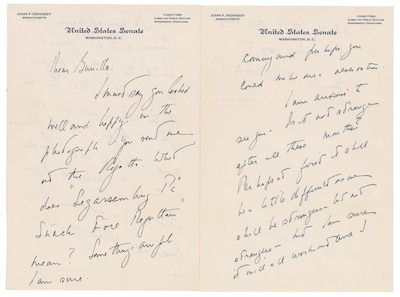 JOHN F. KENNEDY
MASSACHUSETTS
COMMITTEES:
LABOR AND PUBLIC WELFARE
GOVERNMENT OPERATIONS
United States Senate
WASHINGTON, D.C.
Dear Gunilla:
I must say you looked
well and happy in the
photograph you send me
at the Regatta. What
does
Före Regattan
mean? Something awful
I am sure.
JOHN F. KENNEDY
MASSACHUSETTS
COMMITTEES:
LABOR AND PUBLIC WELFARE
GOVERNMENT OPERATIONS
United States Senate
WASHINGTON, D.C.
coming and perhaps you
could
I am anxious to
see you. Is it not strange
after all these months?
Perhaps at first it shall
be a little difficult as we
shall be strangers - but not
strangers - but I am sure
it will all work and I